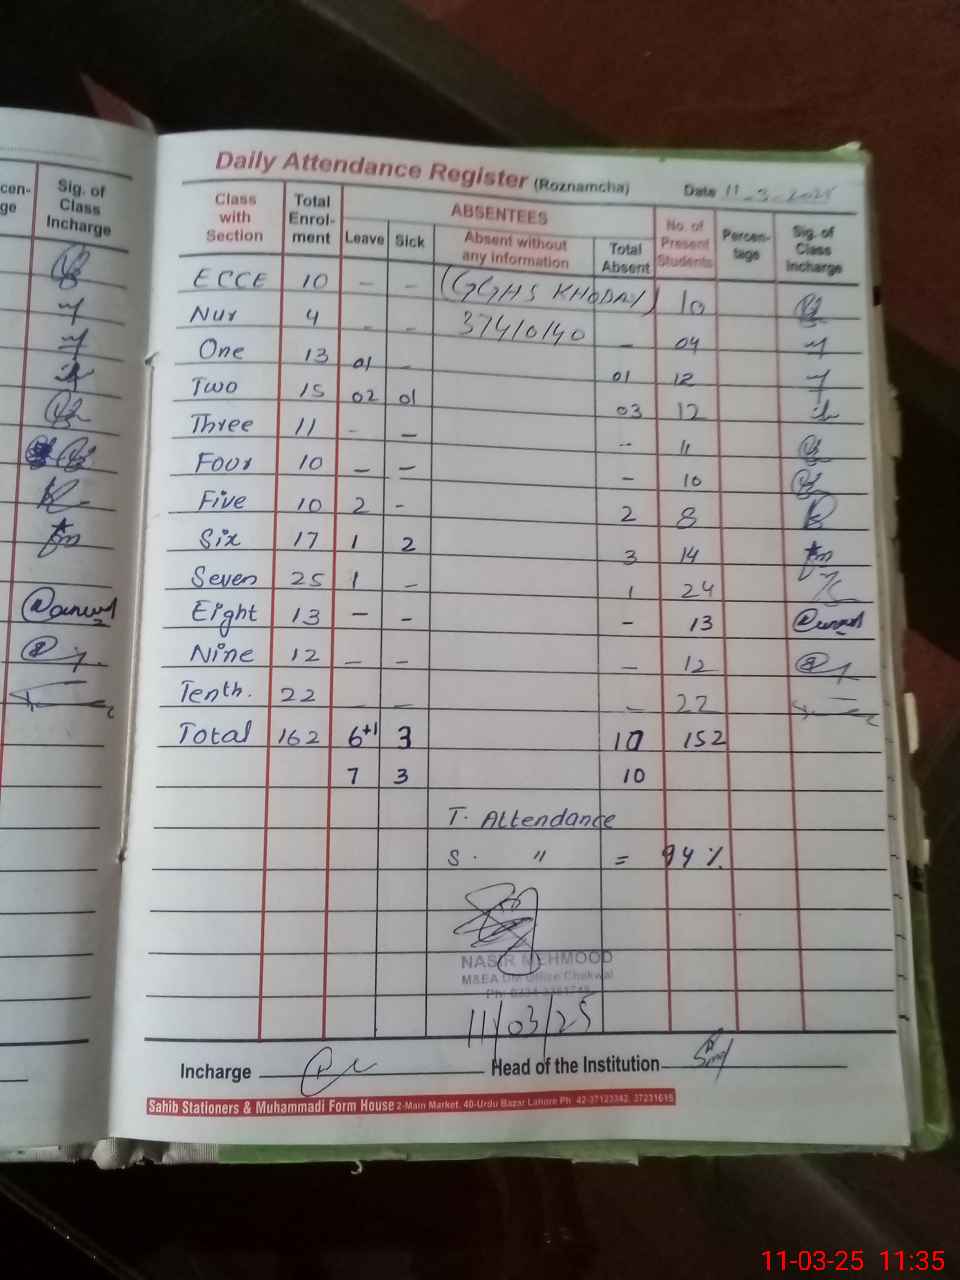 cen-
ge
Sig. of
Class
Incharge
Daily Attendance Register (Roznamcha) Date 11-3-2025
Class with Section Total Enrol-ment ABSENTEES No. of Present Students Percen-tage Sig. of Class Incharge
Leave Sick Absent without any information Total Absent
ECCE 10 - - (GGHS KHODAY) 10
Nur 4 - - 37410140 - 04
One 13 01 - 01 12
Two 15 02 01 03 12
Three 11 - - -- 11
Four 10 - - - 10
Five 10 2 - 2 8
Six 17 1 2 3 14
Seven 25 1 - 1 24
Eight 13 - - - 13
Nine 12 - - - 12
Tenth. 22 - - - 22
Total 162 6+1 3 10 152
7 3 10
T. Attendance
S. " = 94 %
NASIR MEHMOOD
M&EA Office Chakwal
11/03/25
Incharge Head of the Institution
Sahib Stationers & Muhammadi Form House 2-Main Market, 40-Urdu Bazar Lahore Ph 42-37123342, 37231615
11-03-25 11:35